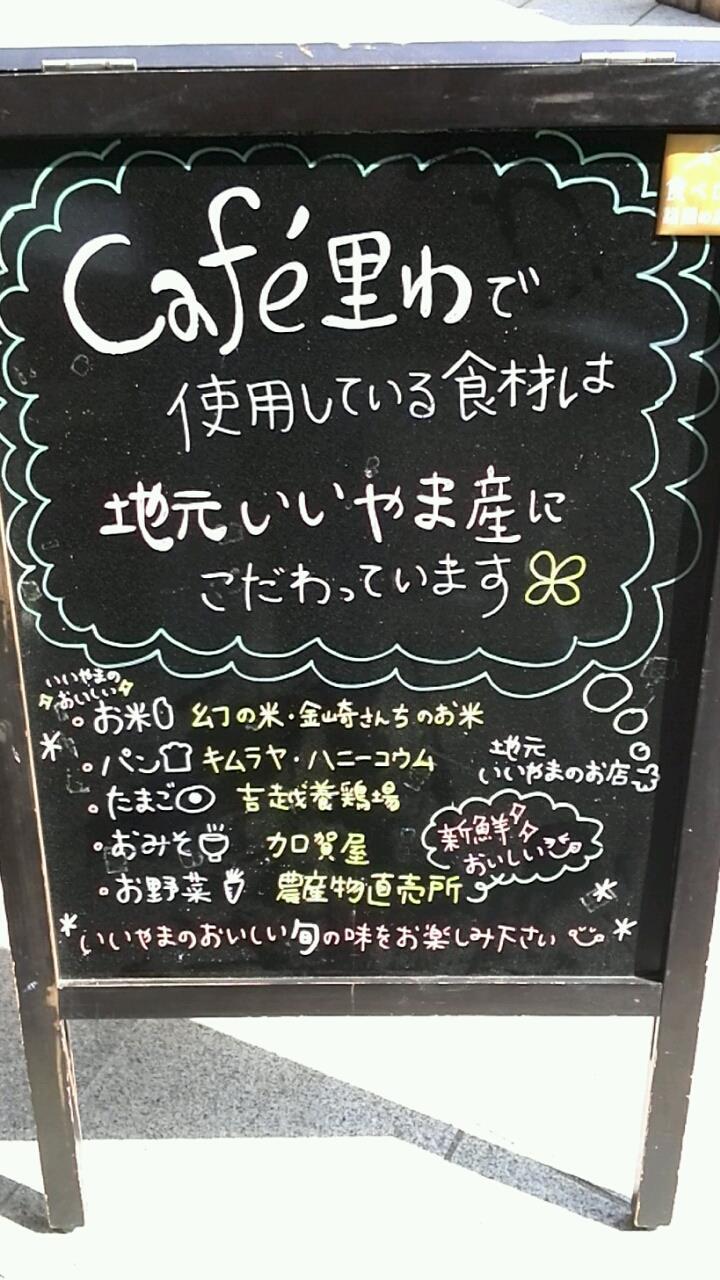 Café里わで
使用している食材は
地元いいやま産に
こだわっています
いいやまの
おいしい
・お米 幻の米・金崎さんちのお米
・パン キムラヤ・ハニーコウム
・たまご 吉越養鶏場
・おみそ 加賀屋
・お野菜 農産物直売所
地元
いいやまのお店
新鮮
おいしい
いいやまのおいしい旬の味をお楽しみ下さい